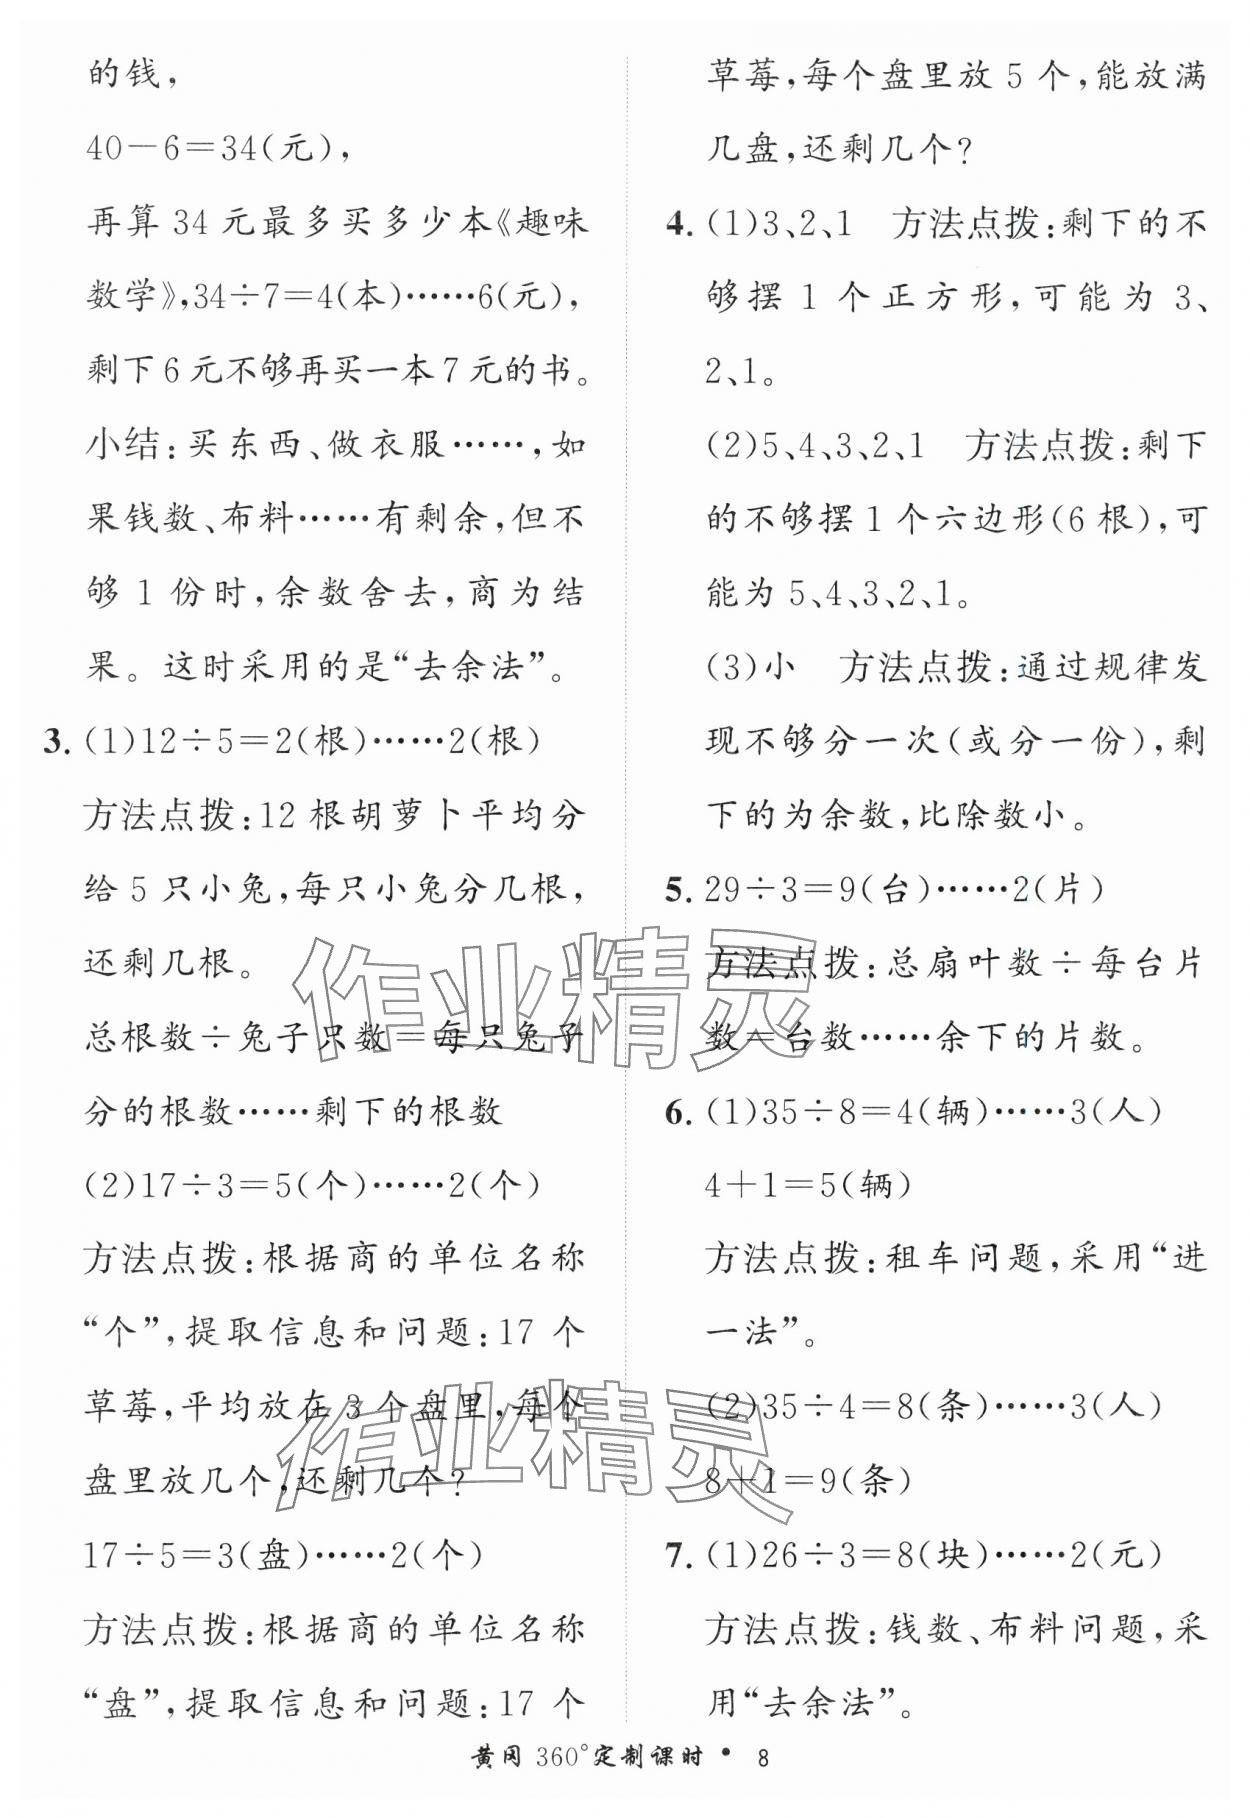 的钱，
40－6＝34(元)，
再算 34 元最多买多少本《趣味
数学》，34÷7＝4(本)……6(元)，
剩下 6 元不够再买一本 7 元的书。
小结：买东西、做衣服……，如
果钱数、布料……有剩余，但不
够 1 份时，余数舍去，商为结
果。这时采用的是“去余法”。
3. (1)12÷5＝2(根)……2(根)
方法点拨：12 根胡萝卜平均分
给 5 只小兔，每只小兔分几根，
还剩几根。
总根数÷兔子只数＝每只兔子
分的根数……剩下的根数
(2)17÷3＝5(个)……2(个)
方法点拨：根据商的单位名称
“个”，提取信息和问题：17 个
草莓，平均放在 3 个盘里，每个
盘里放几个，还剩几个？
17÷5＝3(盘)……2(个)
方法点拨：根据商的单位名称
“盘”，提取信息和问题：17 个
草莓，每个盘里放 5 个，能放满
几盘，还剩几个？
4. (1)3、2、1 方法点拨：剩下的不
够摆 1 个正方形，可能为 3、
2、1。
(2)5、4、3、2、1 方法点拨：剩下
的不够摆 1 个六边形(6 根)，可
能为 5、4、3、2、1。
(3)小 方法点拨：通过规律发
现不够分一次(或分一份)，剩
下的为余数，比除数小。
5. 29÷3＝9(台)……2(片)
方法点拨：总扇叶数÷每台片
数＝台数……余下的片数。
6. (1)35÷8＝4(辆)……3(人)
4＋1＝5(辆)
方法点拨：租车问题，采用“进
一法”。
(2)35÷4＝8(条)……3(人)
8＋1＝9(条)
7. (1)26÷3＝8(块)……2(元)
方法点拨：钱数、布料问题，采
用“去余法”。
作业精灵
作业精灵
黄冈 360°定制课时 • 8